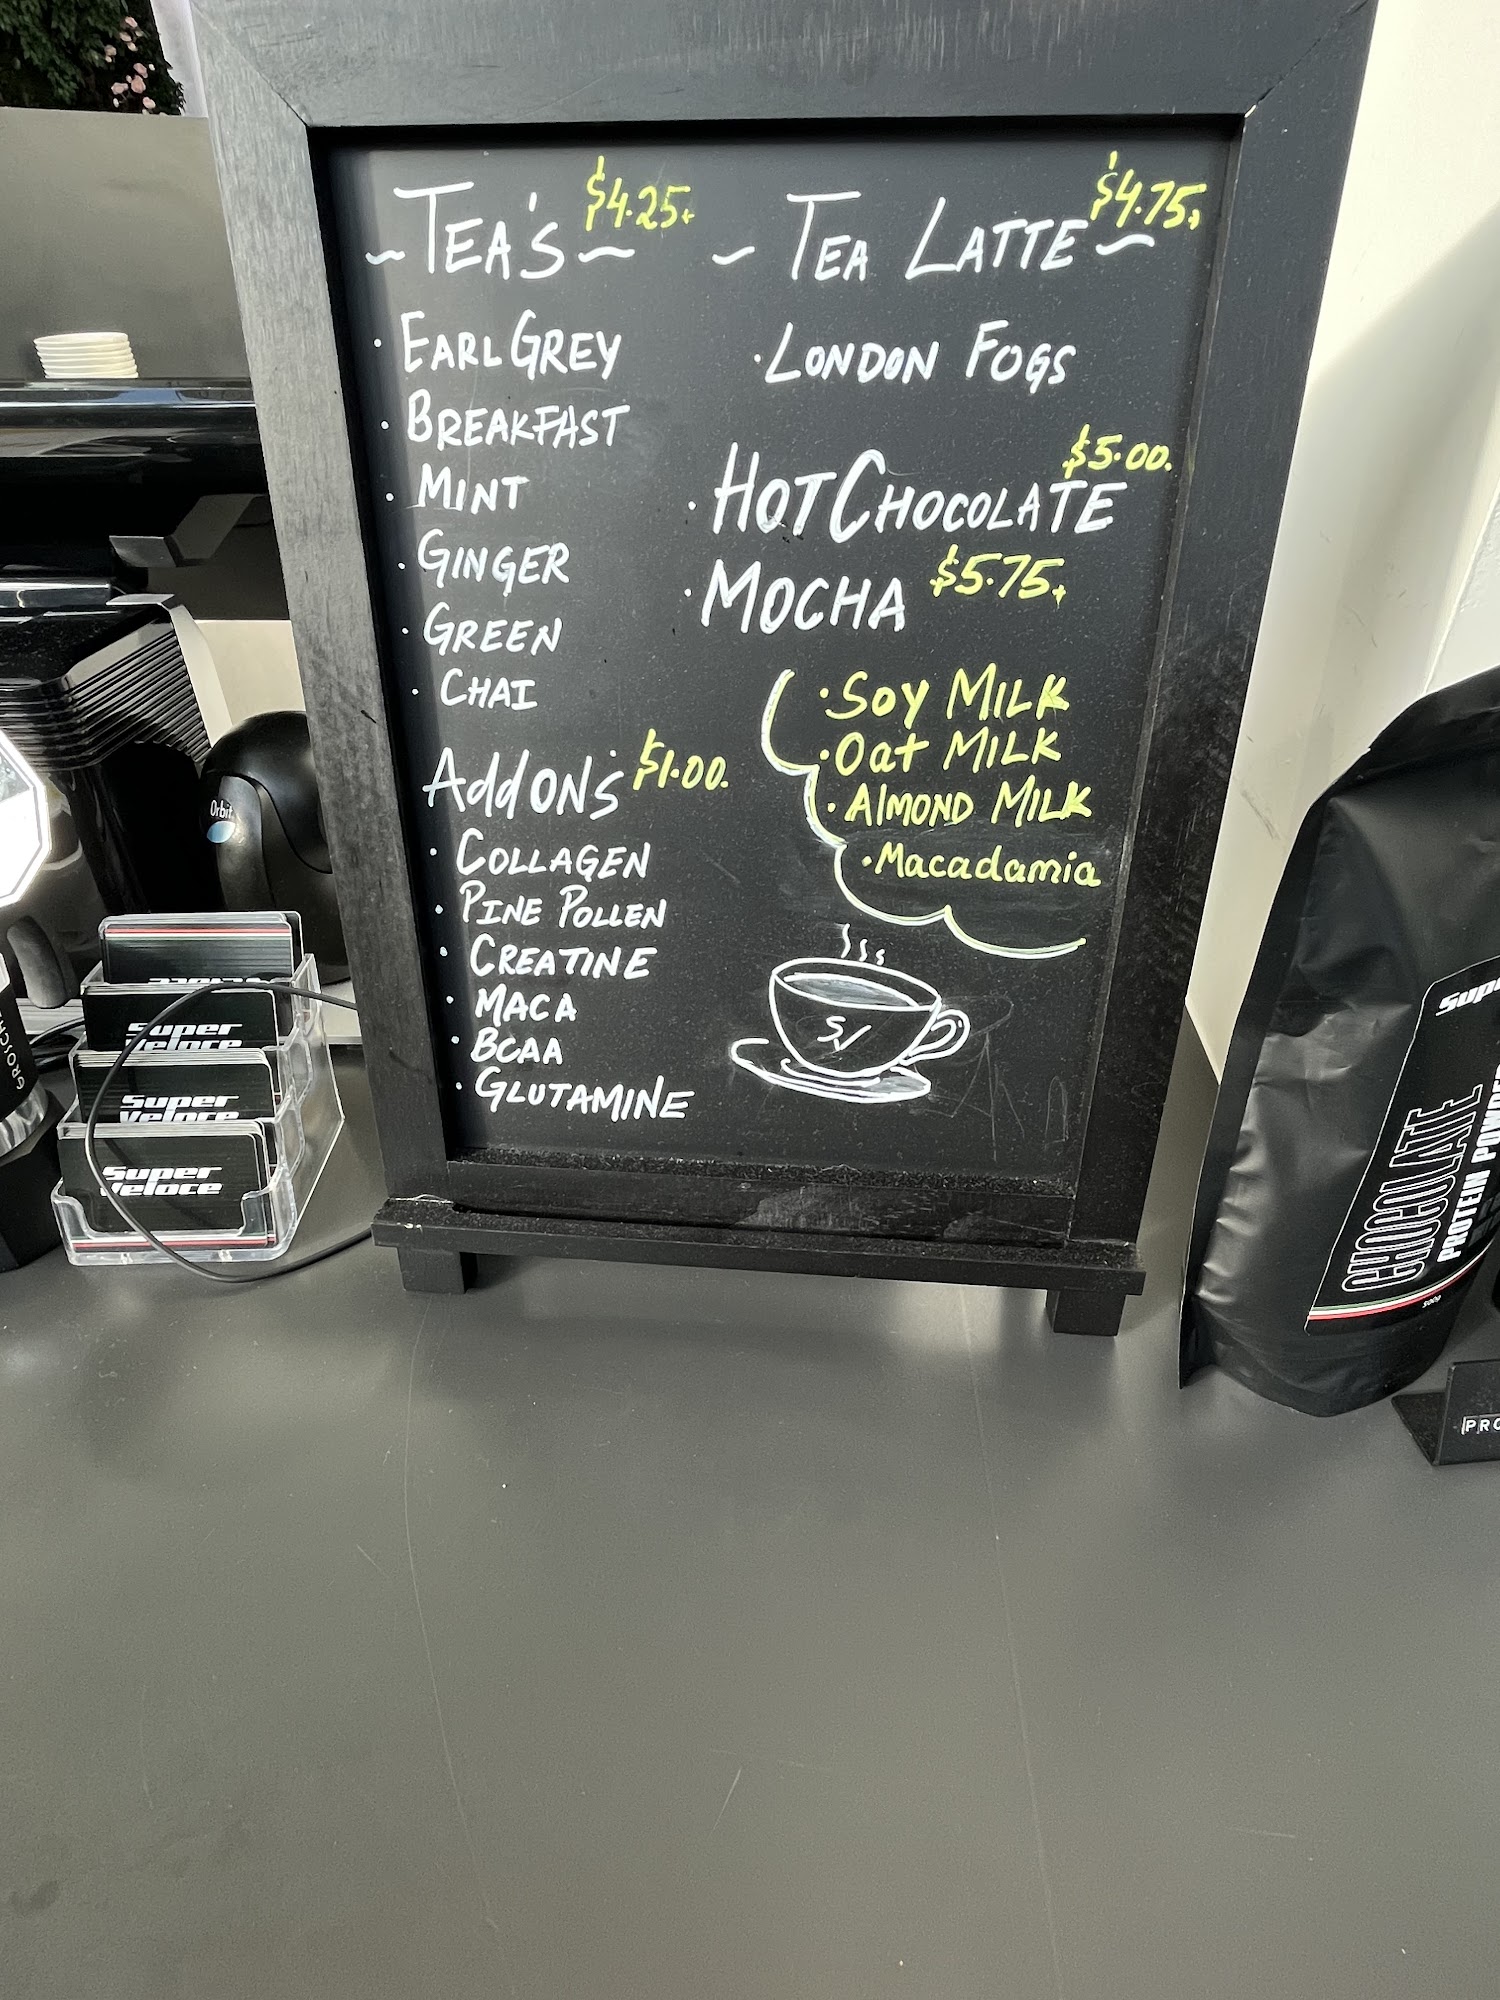 TEA'S $4.25+
• EARL GREY
• BREAKFAST
• MINT
• GINGER
• GREEN
• CHAI
AddONS $1.00.
• COLLAGEN
• PINE POLLEN
• CREATINE
• MACA
• BCAA
• GLUTAMINE
~ TEA LATTE ~ $4.75+
• LONDON FOGS
• HOT CHOCOLATE $5.00.
• MOCHA $5.75+
• SOY MILK
• Oat MILK
• ALMOND MILK
• Macadamia
SV
Orbit
Super
Veloce
Super
Veloce
Super
Veloce
CHOCOLATE
PROTEIN POWDE
500g